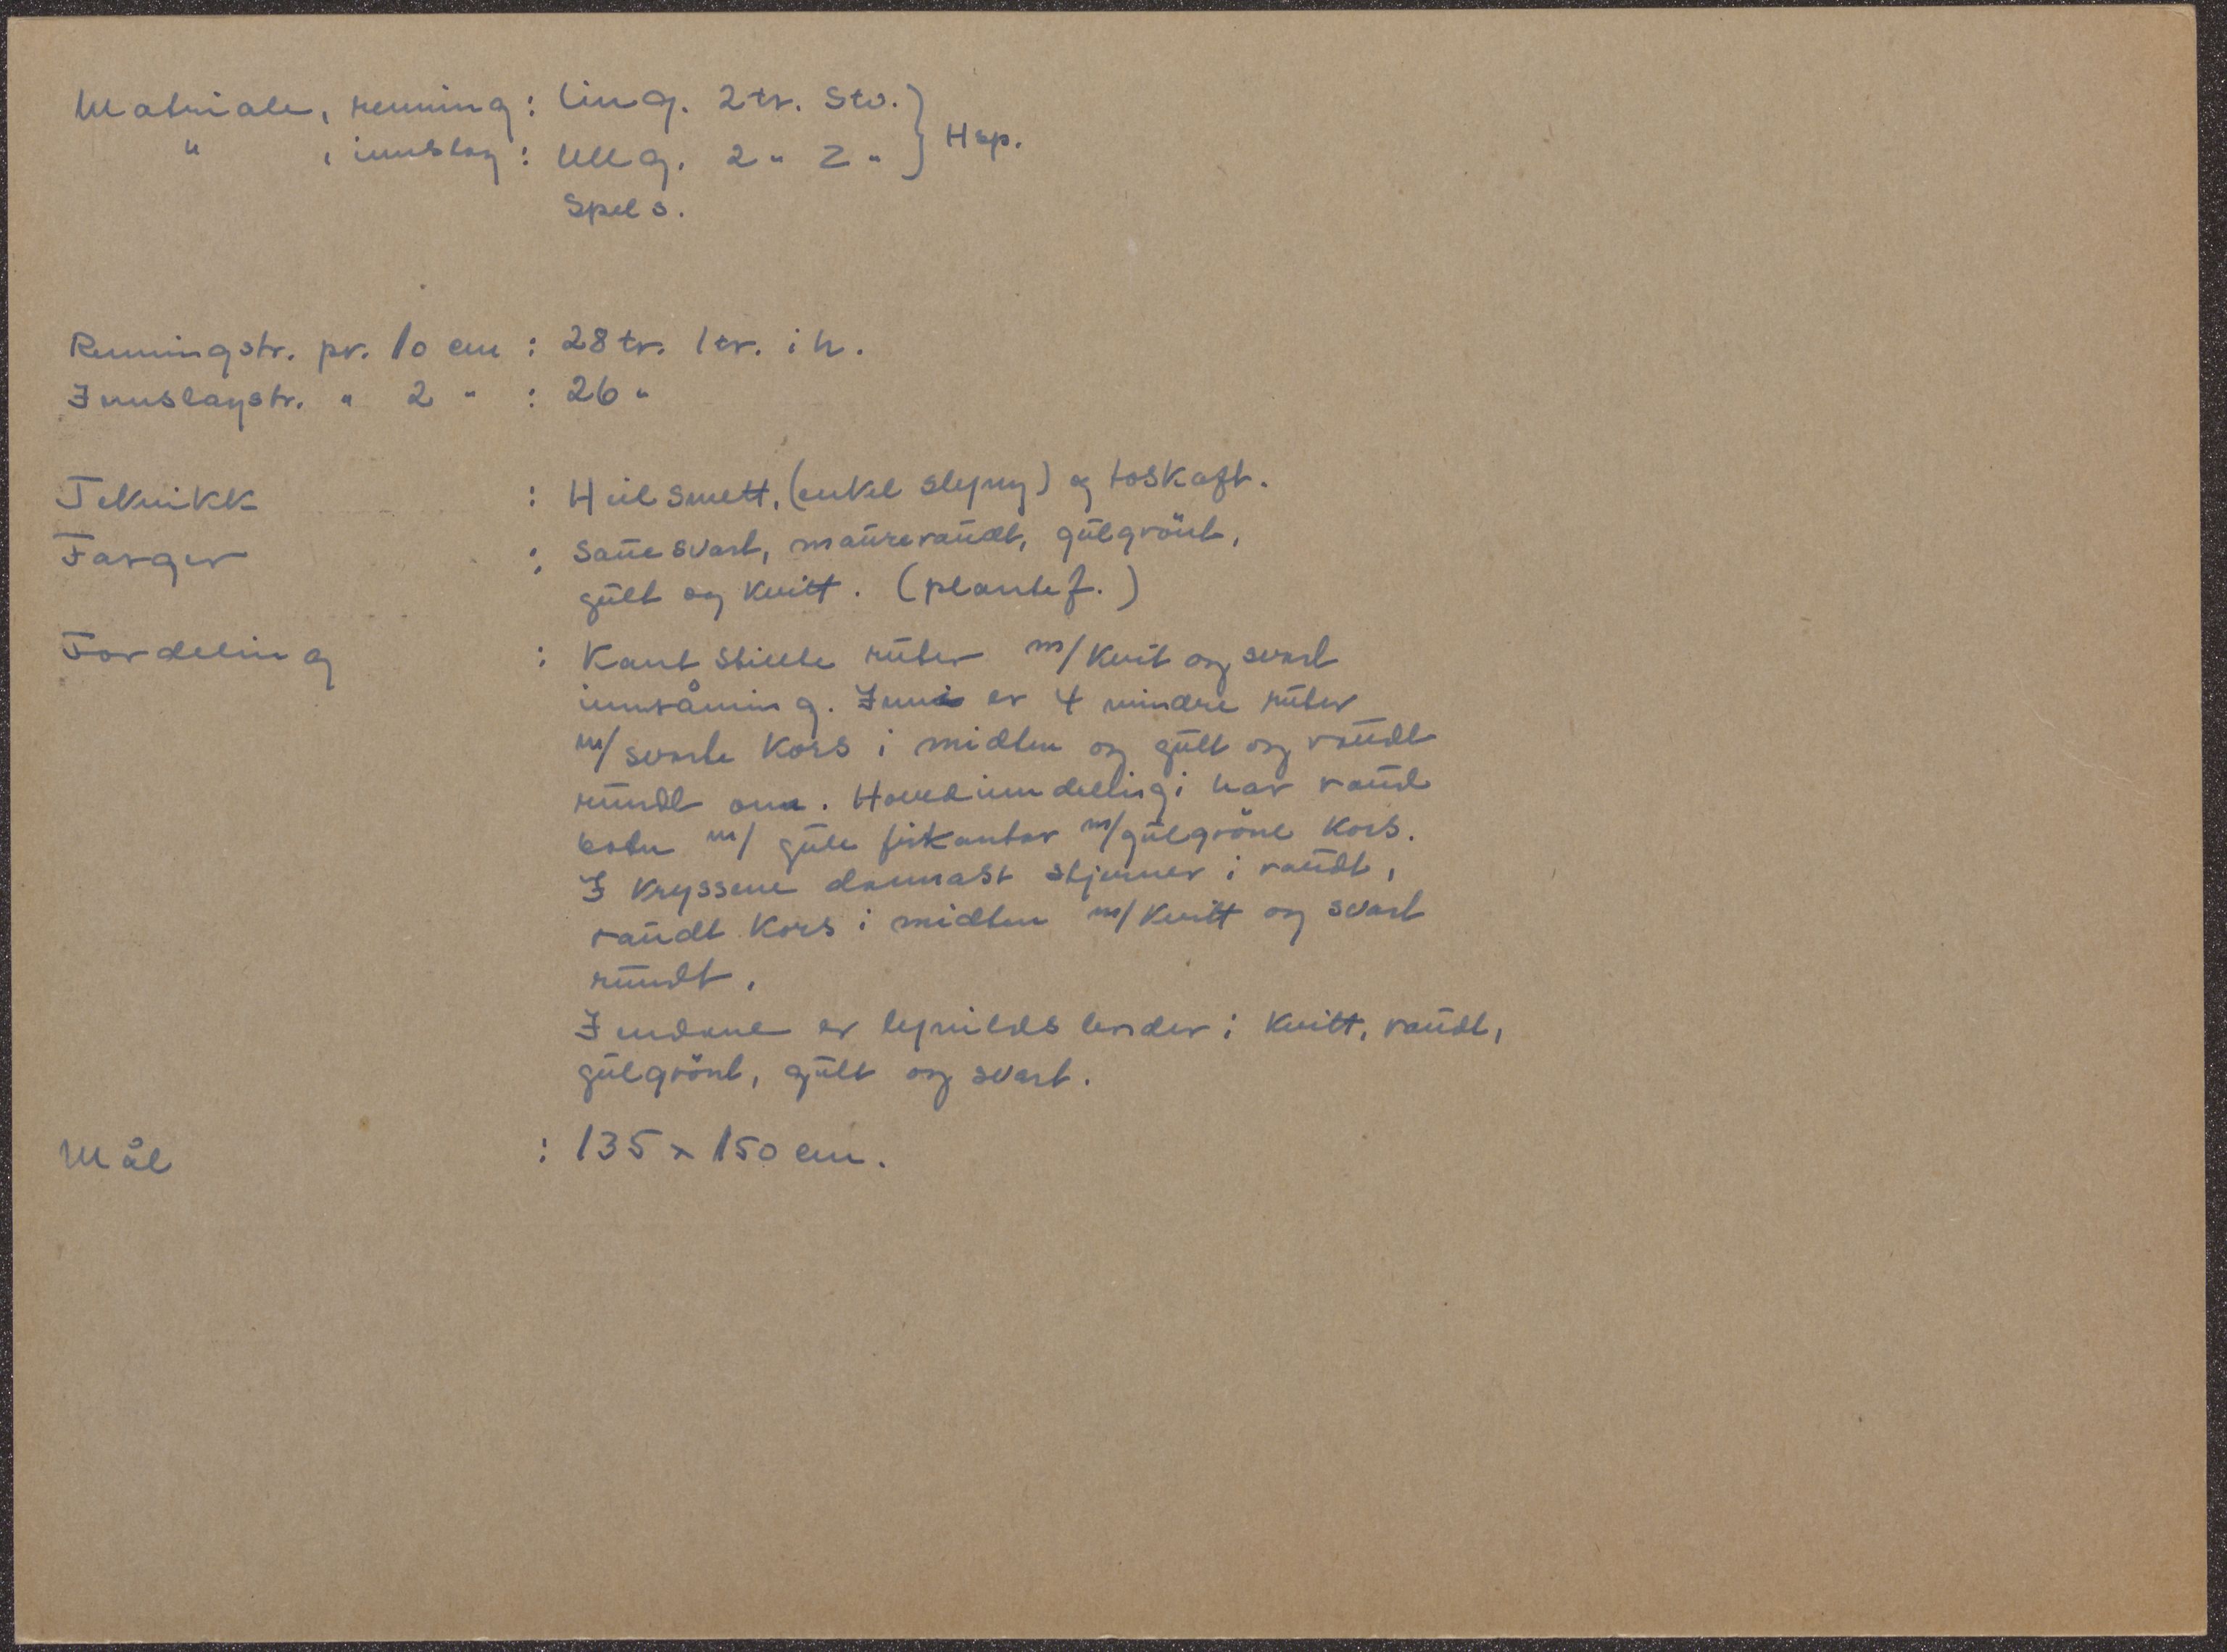 Matriale, renning: Ling. 2tr. Stv. } Hsp.
" , innslag: Ullg. 2 " Z "
Spels.
Renningstr. pr. 10 cm : 28 tr. 1 tr. i h.
Innslagstr. " 2 " : 26 "
Teknikk : Hülsmett, (enkel slyng) og toskaft.
Farger : Saüesvart, maüreraüdt, gülgrönt,
gült og Kvitt. (plantef.)
Fordeling : Kantstillte rüter m/ Kvit og svart
innråming. Inni er 4 mindre rüter
m/ svarte Kors i midten og gült og raüdt
ründt om. Hovedinndeelingi har raüd
botn m/ güle firkantar m/ gülgröne Kors.
I Kryssene dannast stjerner i raüdt,
raüdt Kors i midten m/ Kvitt og svart
ründt.
I endane er border i Kvitt, raüdt,
gülgrönt, gült og svart.
Mål : 135 x 150 cm.